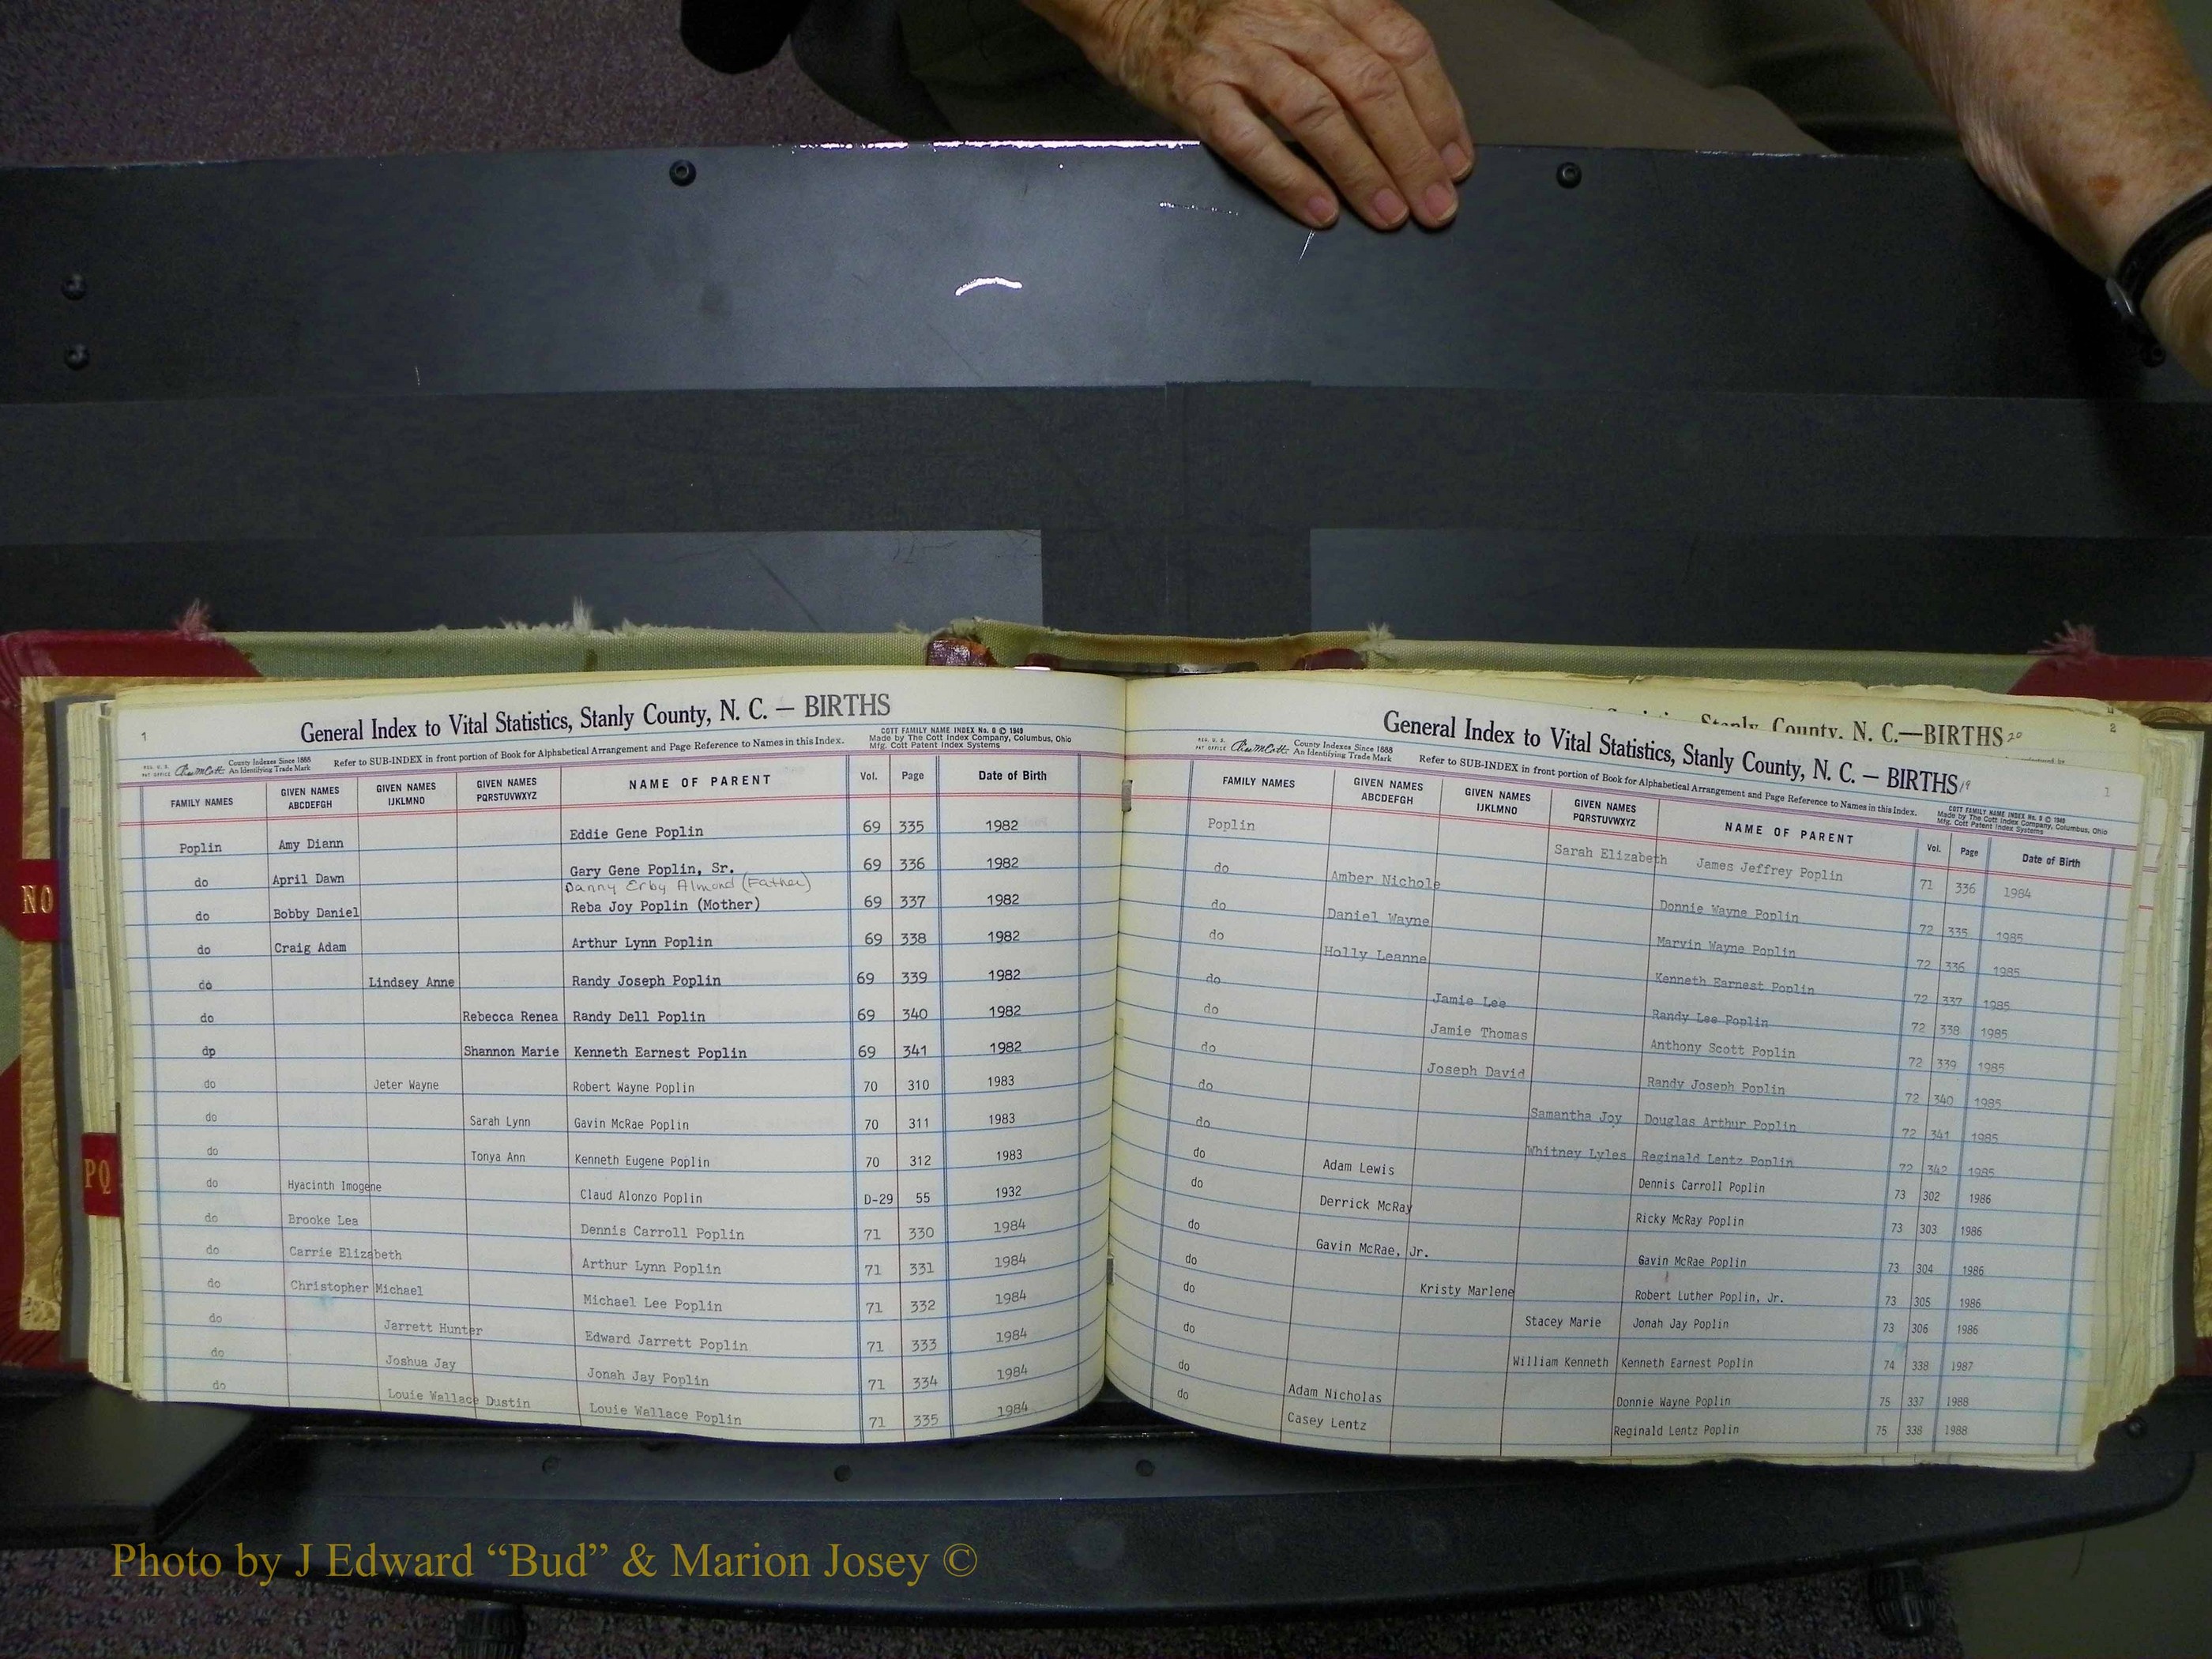 General Index to Vital Statistics, Stanly County, N. C. — BIRTHS
1
COTT FAMILY NAME INDEX No. 8 © 1949
Made by The Cott Index Company, Columbus, Ohio
Mfg. Cott Patent Index Systems
County Indexes Since 1888
An Identifying Trade Mark
Refer to SUB-INDEX in front portion of Book for Alphabetical Arrangement and Page Reference to Names in this Index.
FAMILY NAMES GIVEN NAMES ABCDEFGH GIVEN NAMES IJKLMNO GIVEN NAMES PQRSTUVWXYZ NAME OF PARENT Vol. Page Date of Birth
Poplin Amy Diann Eddie Gene Poplin 69 335 1982
do April Dawn Gary Gene Poplin, Sr. 69 336 1982
Danny Erby Almond (Father)
do Bobby Daniel Reba Joy Poplin (Mother) 69 337 1982
do Craig Adam Arthur Lynn Poplin 69 338 1982
do Lindsey Anne Randy Joseph Poplin 69 339 1982
do Rebecca Renea Randy Dell Poplin 69 340 1982
dp Shannon Marie Kenneth Earnest Poplin 69 341 1982
do Jeter Wayne Robert Wayne Poplin 70 310 1983
do Sarah Lynn Gavin McRae Poplin 70 311 1983
do Tonya Ann Kenneth Eugene Poplin 70 312 1983
do Hyacinth Imogene Claud Alonzo Poplin D-29 55 1932
do Brooke Lea Dennis Carroll Poplin 71 330 1984
do Carrie Elizabeth Arthur Lynn Poplin 71 331 1984
do Christopher Michael Michael Lee Poplin 71 332 1984
do Jarrett Hunter Edward Jarrett Poplin 71 333 1984
do Joshua Jay Jonah Jay Poplin 71 334 1984
do Louie Wallace Dustin Louie Wallace Poplin 71 335 1984
Stanly County, N. C.—BIRTHS 20
2
General Index to Vital Statistics, Stanly County, N. C. — BIRTHS 19
1
County Indexes Since 1888
An Identifying Trade Mark
Refer to SUB-INDEX in front portion of Book for Alphabetical Arrangement and Page Reference to Names in this Index.
COTT FAMILY NAME INDEX No. 8 © 1949
Made by The Cott Index Company, Columbus, Ohio
Mfg. Cott Patent Index Systems
FAMILY NAMES GIVEN NAMES ABCDEFGH GIVEN NAMES IJKLMNO GIVEN NAMES PQRSTUVWXYZ NAME OF PARENT Vol. Page Date of Birth
Poplin Sarah Elizabeth James Jeffrey Poplin 71 336 1984
do Amber Nichole Donnie Wayne Poplin 72 335 1985
do Daniel Wayne Marvin Wayne Poplin 72 336 1985
do Holly Leanne Kenneth Earnest Poplin 72 337 1985
do Jamie Lee Randy Lee Poplin 72 338 1985
do Jamie Thomas Anthony Scott Poplin 72 339 1985
do Joseph David Randy Joseph Poplin 72 340 1985
do Samantha Joy Douglas Arthur Poplin 72 341 1985
do Whitney Lyles Reginald Lentz Poplin 72 342 1985
do Adam Lewis Dennis Carroll Poplin 73 302 1986
do Derrick McRay Ricky McRay Poplin 73 303 1986
do Gavin McRae, Jr. Gavin McRae Poplin 73 304 1986
do Kristy Marlene Robert Luther Poplin, Jr. 73 305 1986
do Stacey Marie Jonah Jay Poplin 73 306 1986
do William Kenneth Kenneth Earnest Poplin 74 338 1987
do Adam Nicholas Donnie Wayne Poplin 75 337 1988
do Casey Lentz Reginald Lentz Poplin 75 338 1988
NO
PQ
Photo by J Edward “Bud” & Marion Josey ©